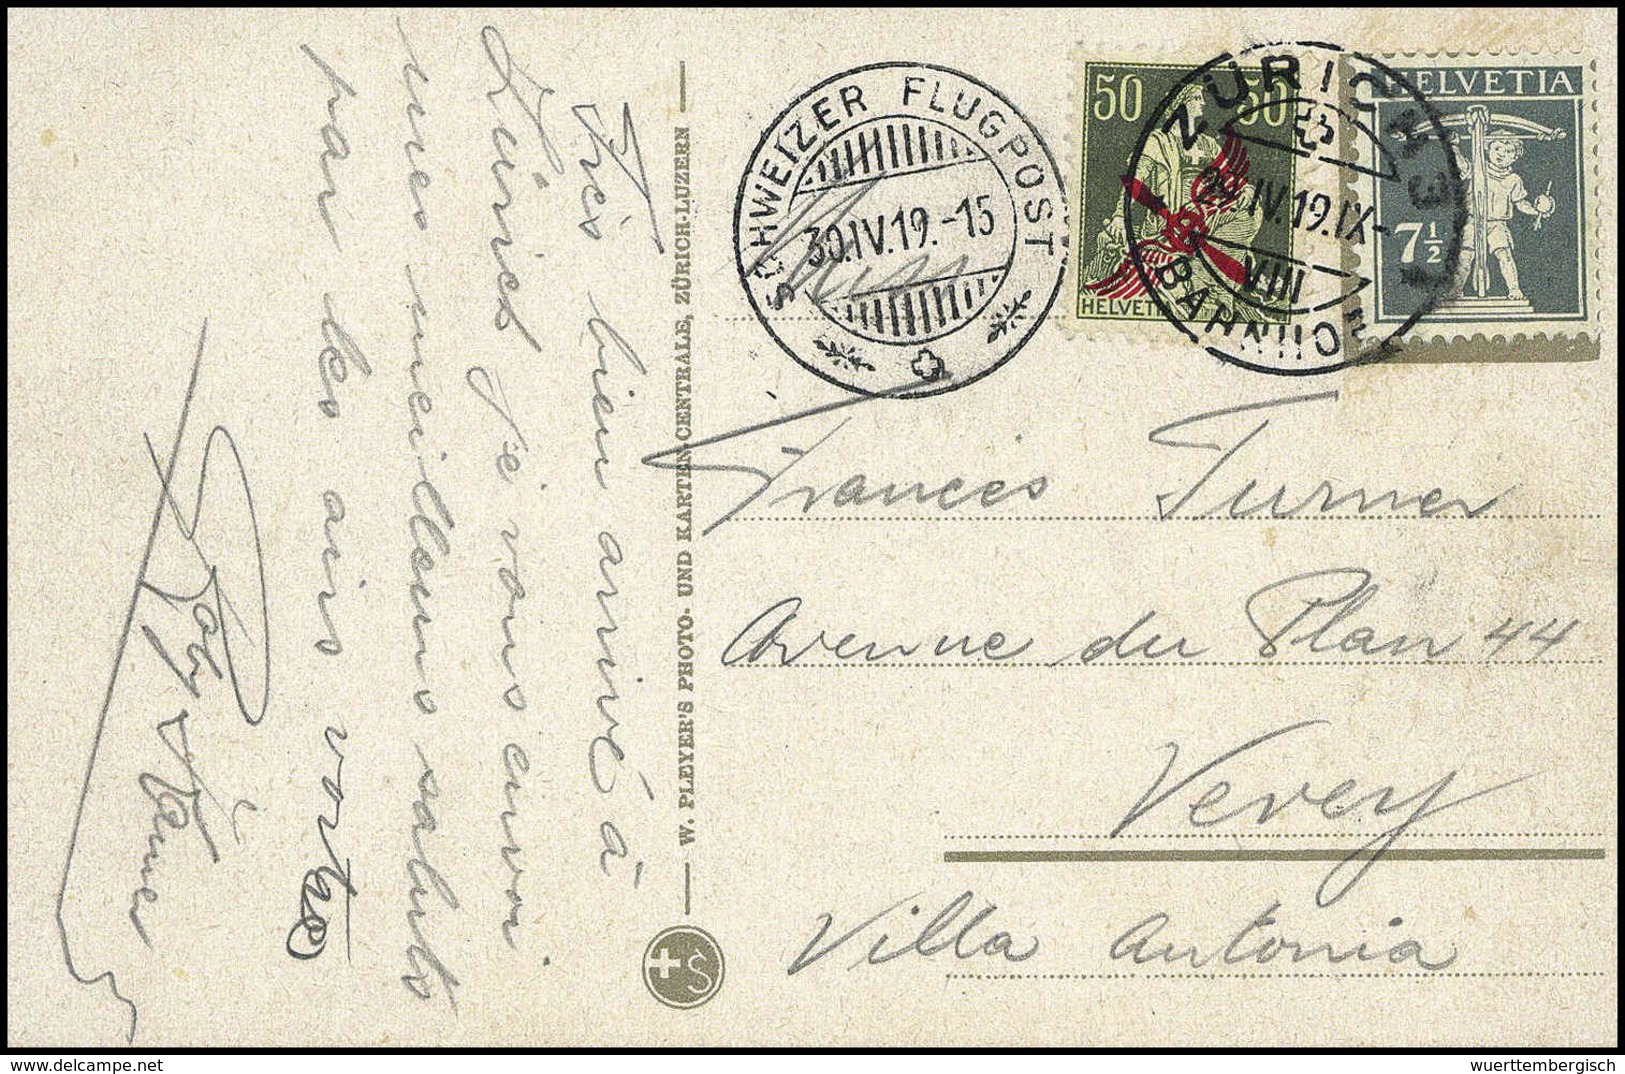 Très bien arrivé à
Zürich je vous envoi
mes meilleurs saluts
par les airs
W. PLEYER'S PHOTO- UND KARTEN-CENTRALE, ZÜRICH-LUZERN
SCHWEIZER FLUGPOST
30.IV.19.-15
50 50
HELVETIA
ZÜRICH
29.IV.19.IX-
VIII
BAHNHOF
HELVETIA
7½
Francis Turner
Avenue du Plan 44
Vevey
Villa Antonia
wuerttembergisch